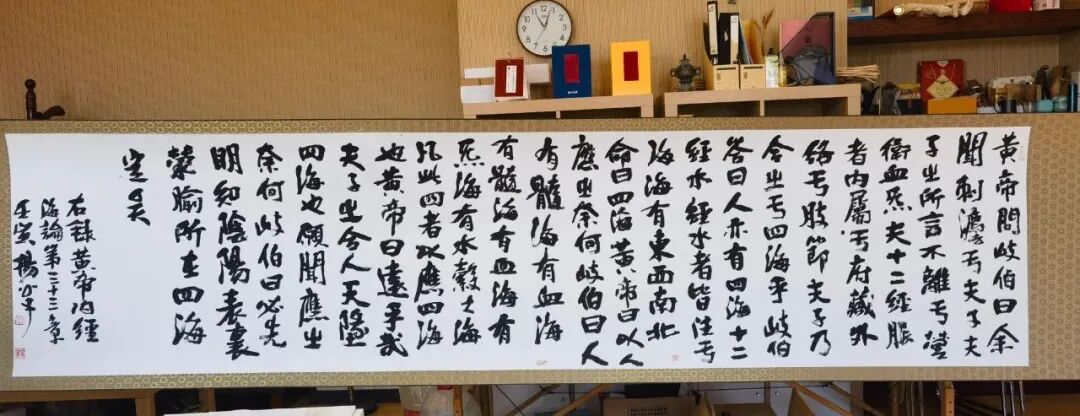 黄帝問岐伯曰余
聞刺灋亏夫子夫
子之所言不離亏營
衛血炁夫十二經脈
者内屬亏府藏外
絡亏肢節夫子乃
合之亏四海乎岐伯
答曰人亦有四海十二
經水經水者皆注亏
海海有東西南北
命曰四海黄帝曰以人
應之奈何岐伯曰人
有髓海有血海
有髓海有血海有
炁海有水穀之海
凡此四者以應四海
也黄帝曰遠乎哉
夫子之合人天墬
四海也願聞應之
奈何岐伯曰必先
明知陰陽表裏
滎腧所在四海
定矣
右録黄帝内經
海論第三十三章
壬寅楊